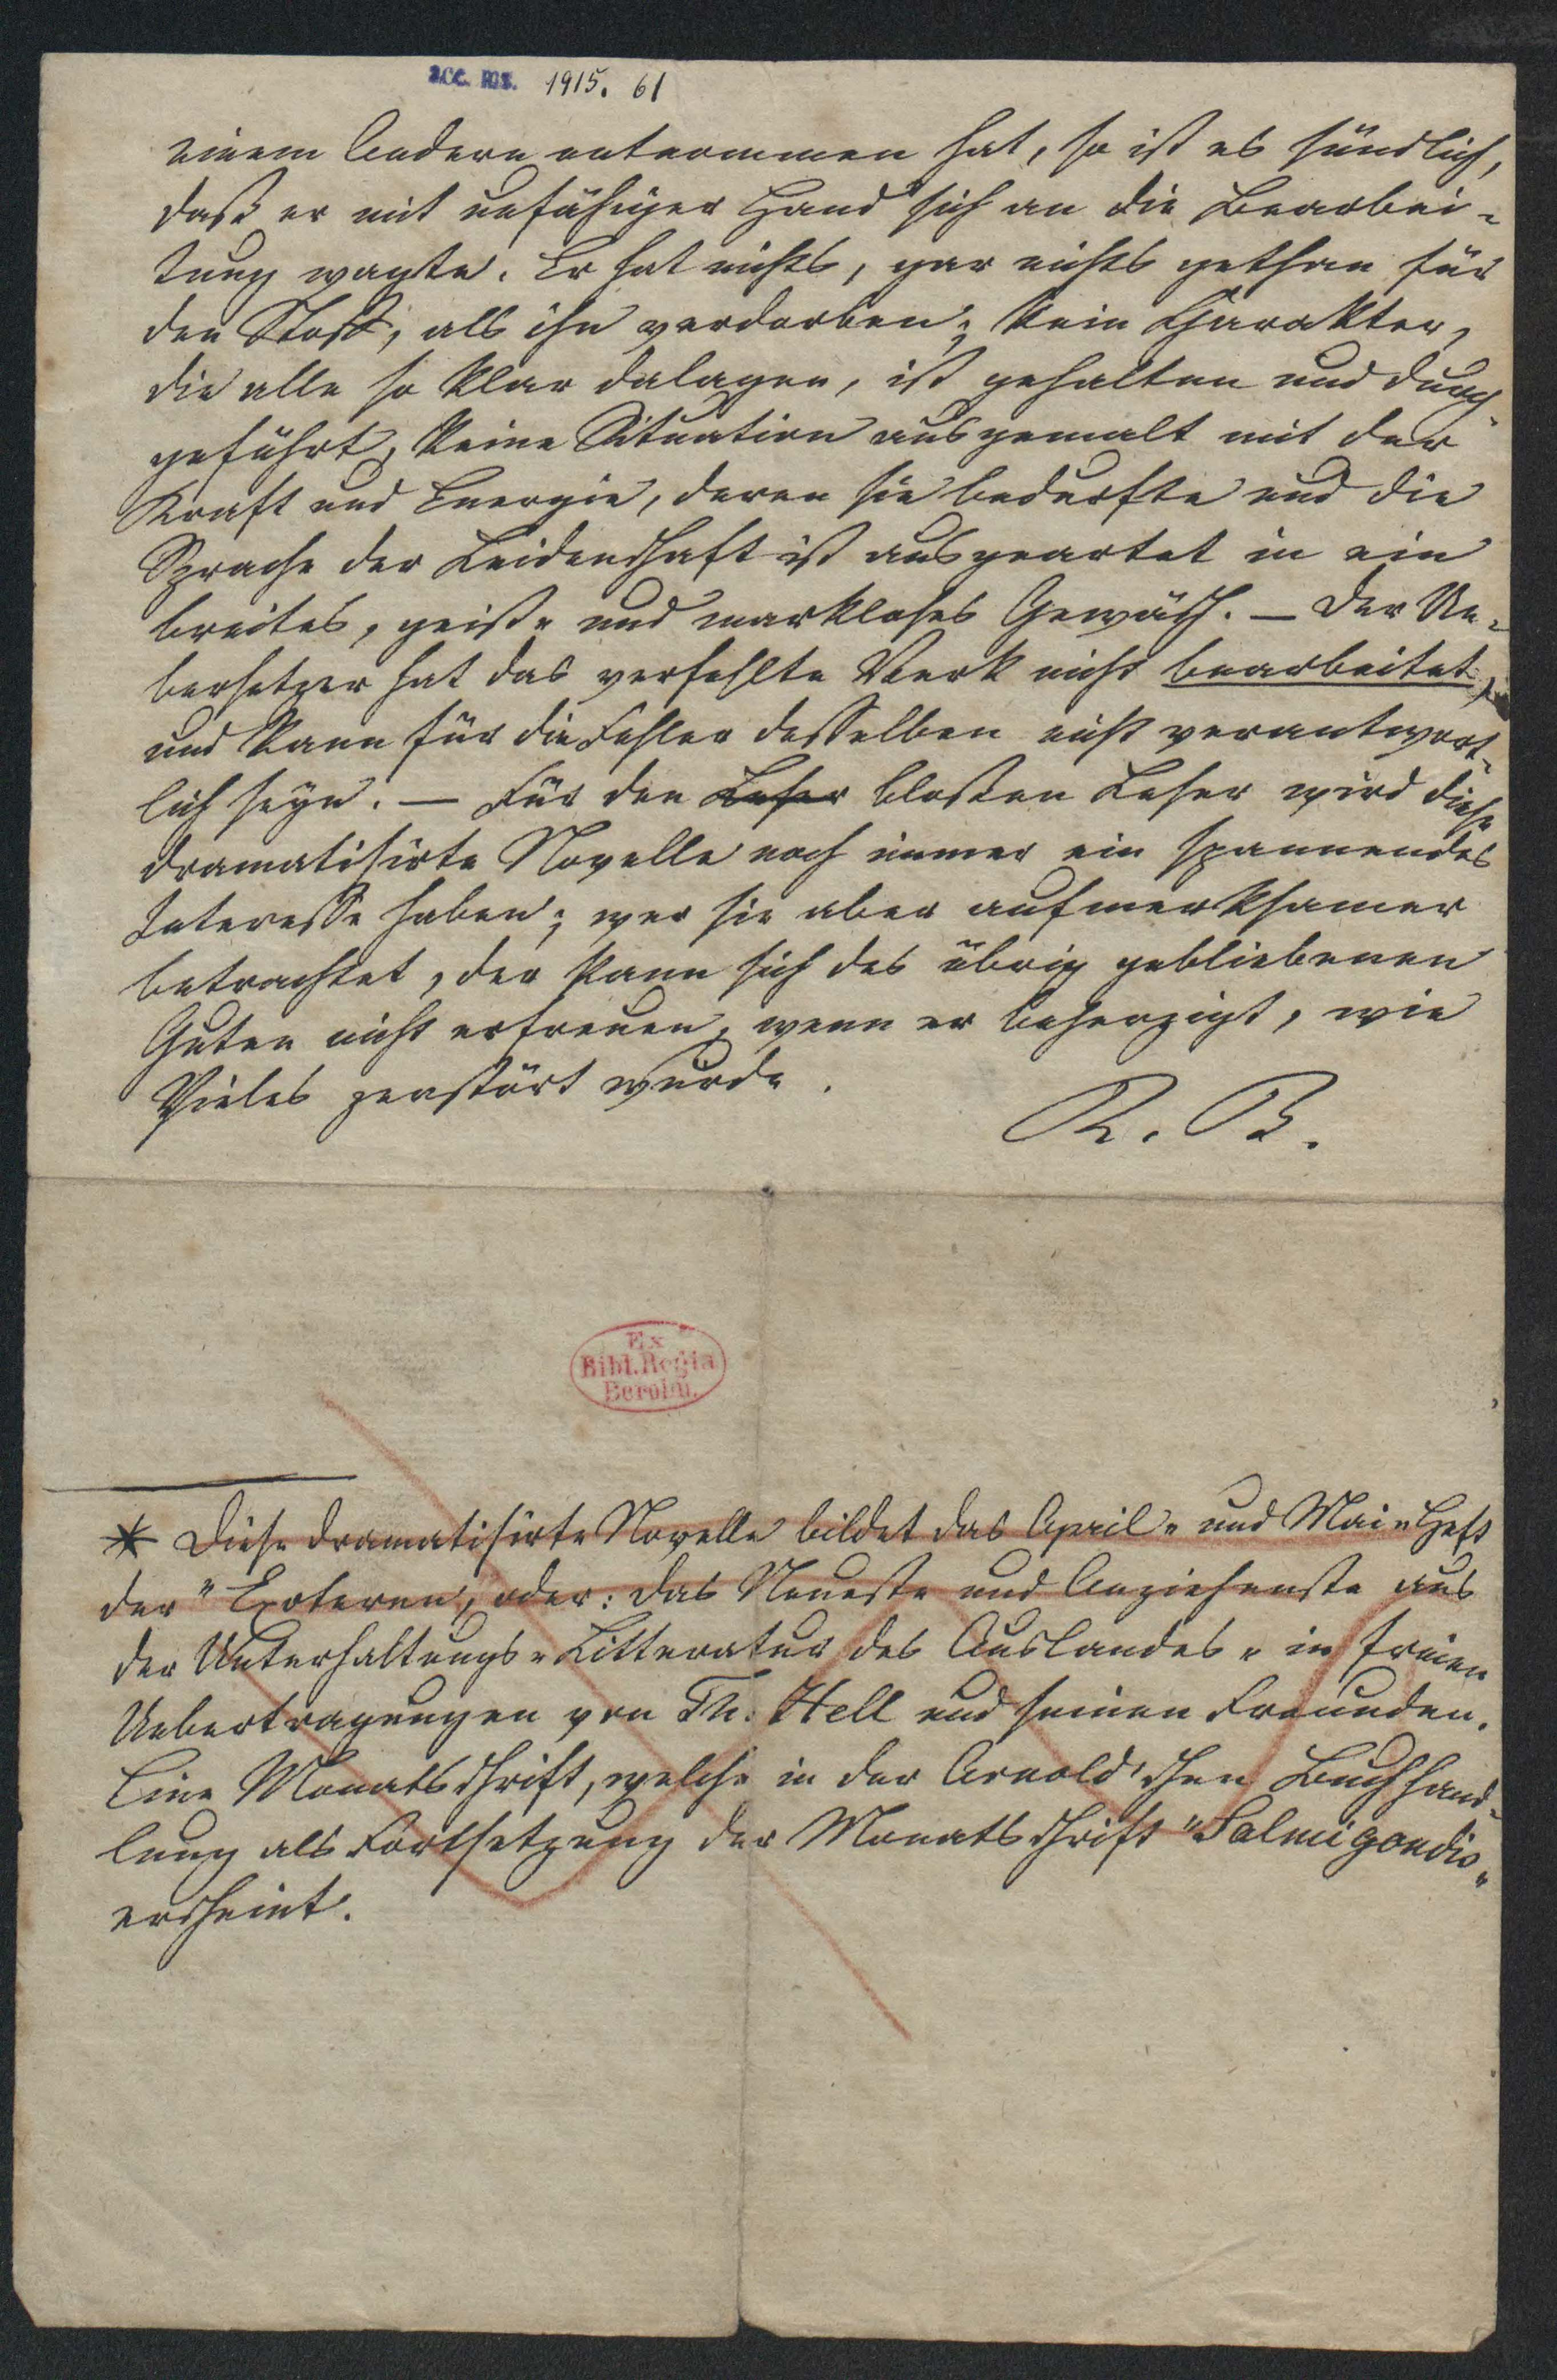 acc. ms. 1915. 61
einem Andern entnommen hat, so ist es sündlich,
daß er mit unfähiger Hand sich an die Bearbei-
tung wagte. Er hat nichts, gar nichts gethan für
den Stoff, als ihn verdorben; kein Charakter,
die alle so klar dalagen, ist gehalten und durch-
geführt, keine Situation ausgemalt mit der
Kraft und Energie, deren sie bedurfte und die
Sprache der Leidenschaft ist ausgeartet in ein
breites, geist- und markloses Gewäsch. — Der Ue-
bersetzer hat das verfehlte Werk nicht bearbeitet,
und kann für die Fehler desselben nicht verantwort-
lich seyn. — Für den Leser bloßen Leser wird diese
dramatisirte Novelle noch immer ein spannendes
Interesse haben; wer sie aber aufmerksamer
betrachtet, der kann sich des übrig gebliebenen
Guten nicht erfreuen, wenn er beherzigt, wie
Vieles zerstört wurde.
R. B.
Ex
Bibl. Regia
Berolin.
* Diese dramatisirte Novelle bildet das April- und Mai-Heft
der "Exoteren, oder: das Neueste und Anziehenste aus
der Unterhaltungs-Litteratur des Auslandes" in freien
Uebertragungen von Th. Hell und seinen Freunden.
Eine Monatsschrift, welche in der Arnold'schen Buchhand-
lung als Fortsetzung der Monatsschrift "Salmigondis"
erscheint.